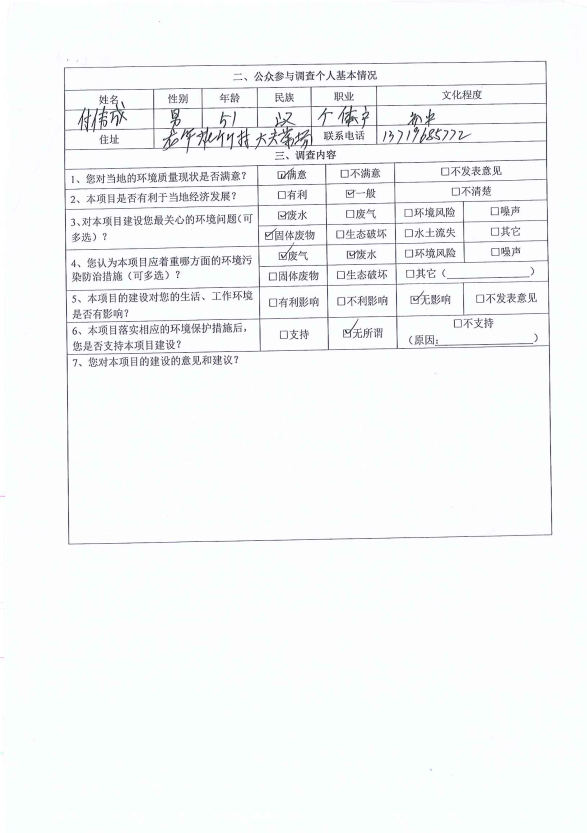 二、公众参与调查个人基本情况
姓名 性别 年龄 民族 职业 文化程度
付伟成 男 51 汉 个体户 初中
住址 联系电话 13719685772
三、调查内容
1、您对当地的环境质量现状是否满意？ ☑满意 □不满意 □不发表意见
2、本项目是否有利于当地经济发展？ □有利 ☑一般 □不清楚
3、对本项目建设您最关心的环境问题（可多选）？ ☑废水 □废气 □环境风险 □噪声
☑固体废物 □生态破坏 □水土流失 □其它
4、您认为本项目应着重哪方面的环境污染防治措施（可多选）？ ☑废气 ☑废水 □环境风险 □噪声
□固体废物 □生态破坏 □其它（ ）
5、本项目的建设对您的生活、工作环境是否有影响？ □有利影响 □不利影响 ☑无影响 □不发表意见
6、本项目落实相应的环境保护措施后，您是否支持本项目建设？ □支持 ☑无所谓 □不支持
（原因： ）
7、您对本项目的建设的意见和建议？